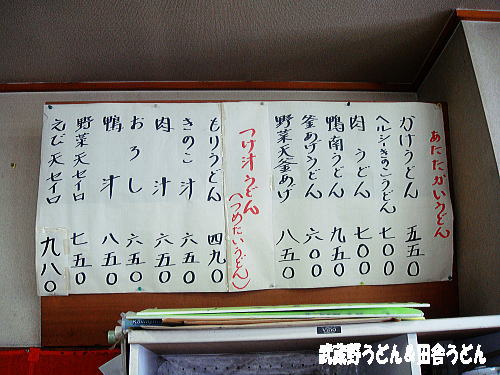 あたたかいうどん
かけうどん 五五〇
ヘルシーきのこうどん 七〇〇
肉うどん 七〇〇
鴨南うどん 九五〇
釜あげうどん 六〇〇
野菜天釜あげ 八五〇
つけ汁うどん
(つめたいうどん)
もりうどん 四九〇
きのこ汁 六五〇
肉汁 六五〇
おろし 六五〇
鴨汁 八五〇
野菜天セイロ 七五〇
えび天セイロ 九八〇
武蔵野うどん&田舎うどん